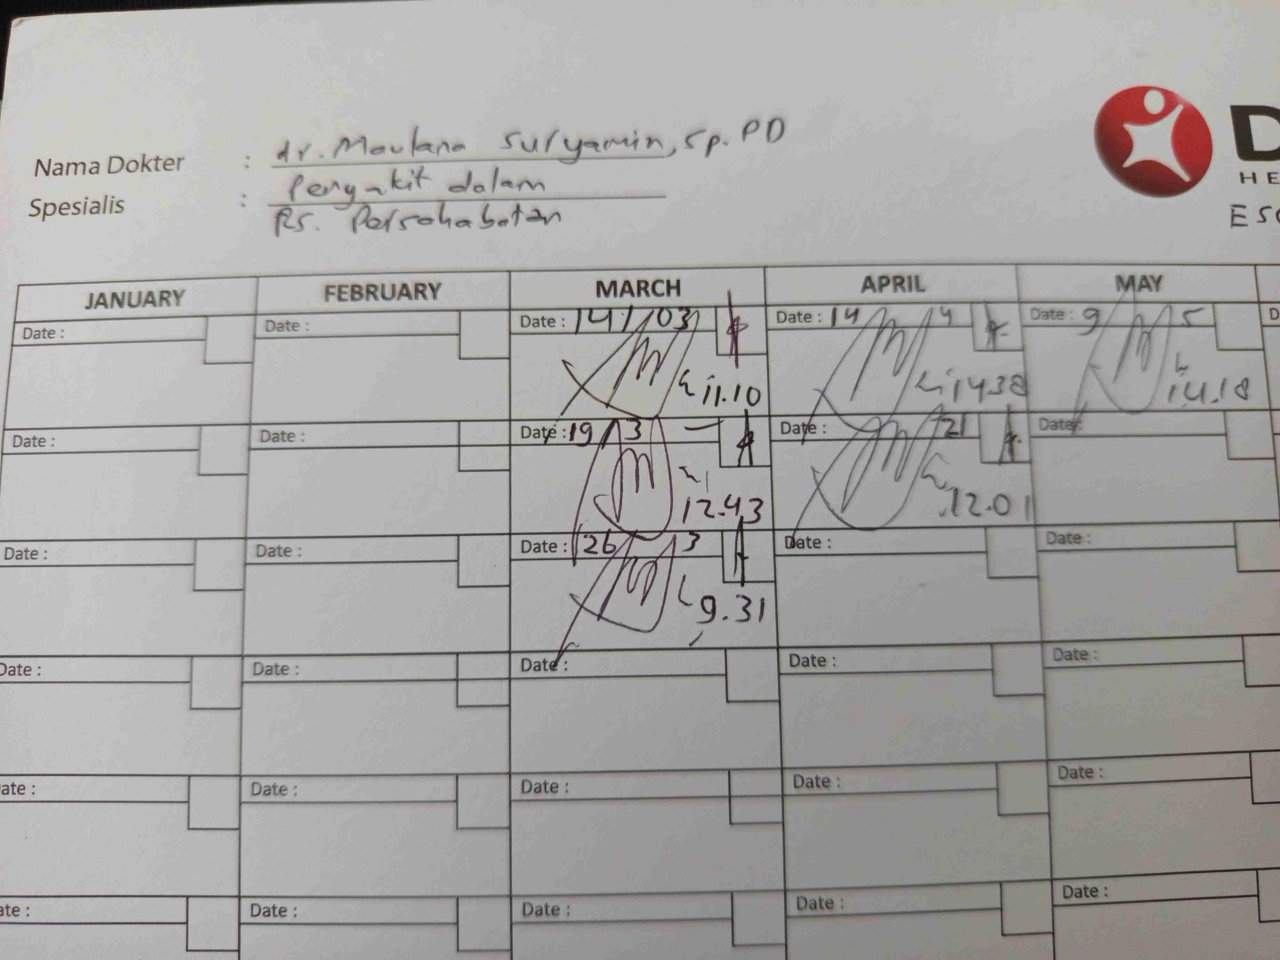 Nama Dokter : dr. Maulana Suryamin, Sp. PD
Spesialis : Penyakit dalam
Rs. Persahabatan
D
HE
ESC
JANUARY FEBRUARY MARCH APRIL MAY
Date : Date : Date : 14/03 Date : 14 4 Date : 9 5 D
11.10 14.38 14.18
Date : Date : Date : 19/3 Date : 21 Date :
12.43 12.01
Date : Date : Date : 26 3 Date : Date :
9.31
Date : Date : Date : Date : Date :
ate : Date : Date : Date : Date :
ate : Date : Date : Date : Date :